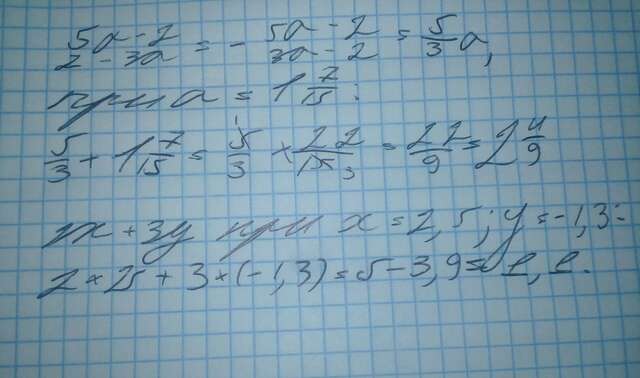 (5a-2)/(2-3a) = - (5a-2)/(3a-2) = 5/3 a,
при a = 1 7/15:
5/3 + 1 7/15 = 5/3 × 22/15 = 22/9 = 2 4/9
2x + 3y при x = 2,5; y = -1,3:
2 × 25 + 3 × (-1,3) = 5 - 3,9 = 1,1.